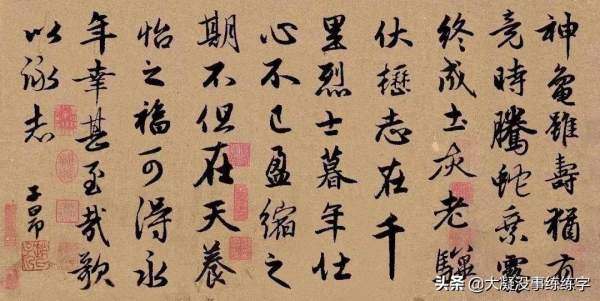 神龜雖壽猶有
竟時騰蛇乘霧
終成土灰老驥
伏櫪志在千
里烈士暮年壮
心不已盈縮之
期不但在天養
怡之福可得永
年幸甚至哉歌
以詠志
子昂
头条 @大凝没事练练字